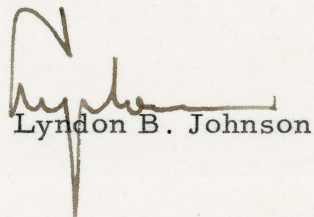 Lyndon
Lyndon B. Johnson